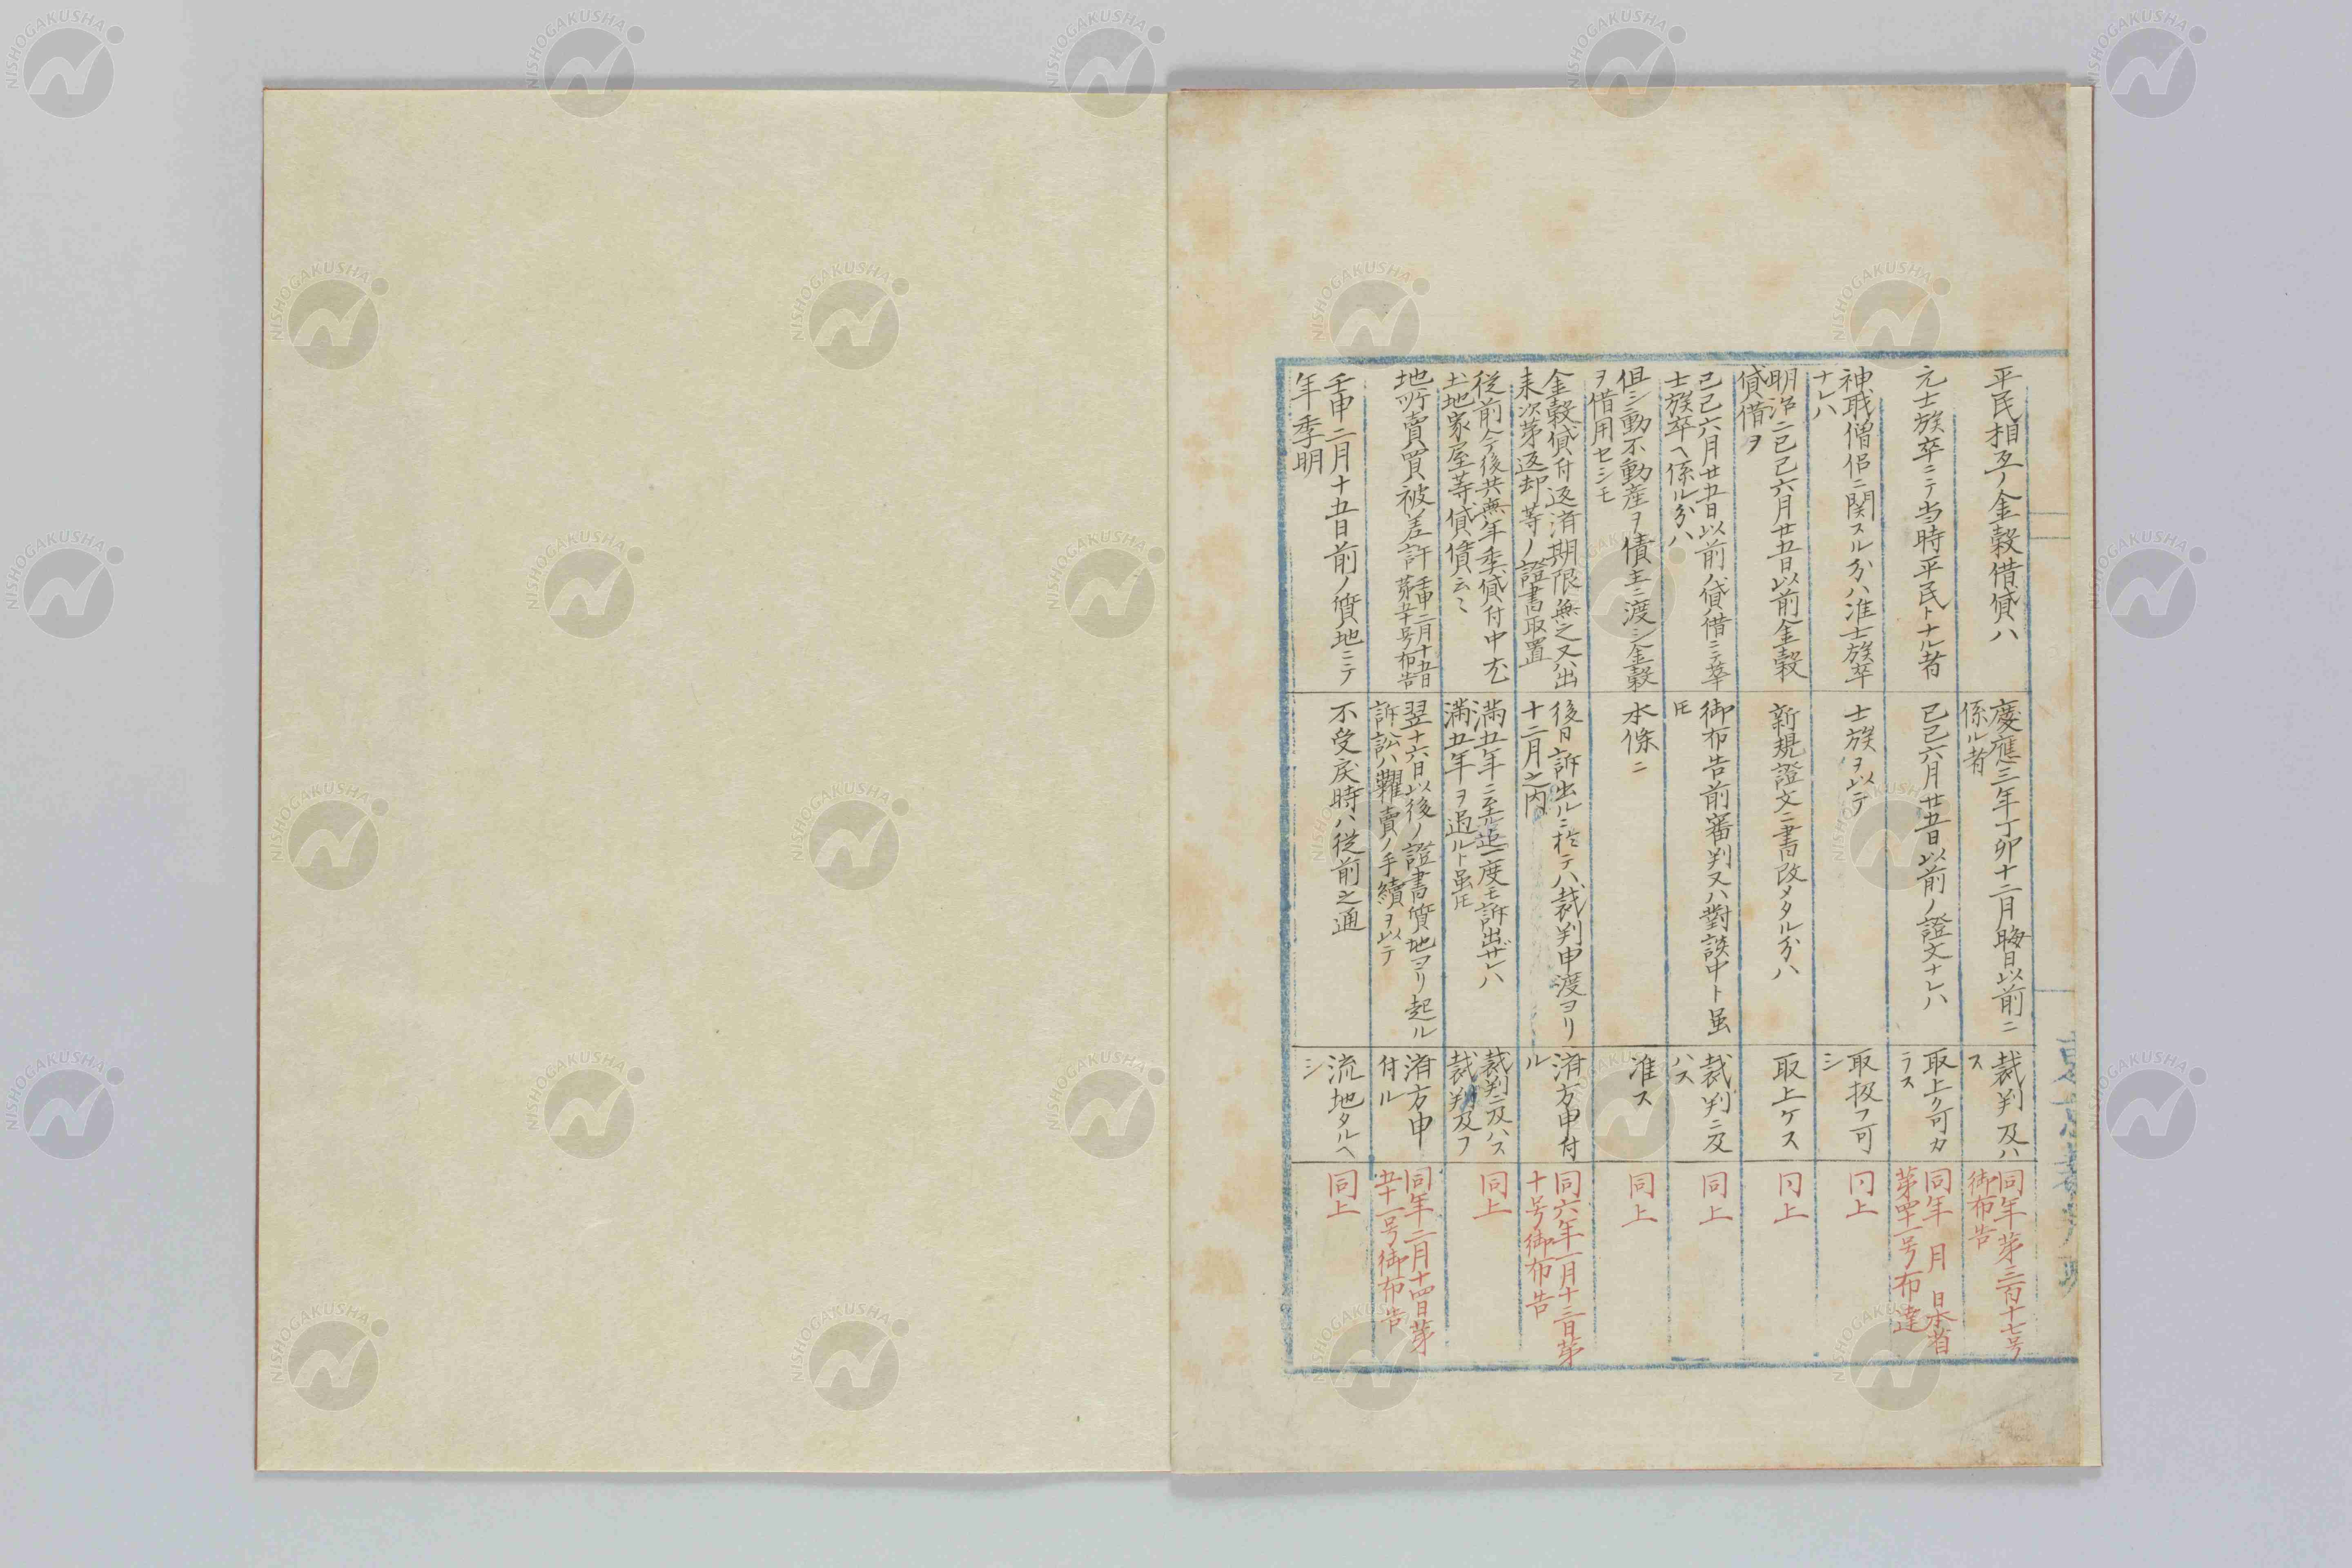 平民相互ノ金穀借貸ハ
慶應三年丁卯十二月晦日以前ニ
係ル者
裁判及ハ
ス
同年第三百十七号
御布告
元士族卒ニテ当時平民トナル者
己己六月廿五日以前ノ證文ナレハ
取上ク可カ
ラス
同年 月 日本省
第四十一号布達
神職僧侶ニ関スル分ハ准士族卒
ナレハ
士族ヲ以テ
取扱フ可
シ
同上
明治二己己六月廿五日以前金穀
貸借ヲ
新規證文ニ書改メタル分ハ
取上ケス
同上
己己六月廿五日以前ノ貸借ニテ華
士族卒ヘ係ル分ハ
御布告前審判又ハ對談中ト虽
𪜈
裁判ニ及
ハス
同上
但シ動不動産ヲ債主ニ渡シ金穀
ヲ借用セシモ
本條ニ
准ス
同上
金穀貸付返済期限無之又ハ出
来次第返却等ノ證書取置
後日訴出ルニ於テハ裁判申渡ヨリ
十二月之内
済方申付
ル
同六年一月十三日第
十号御布告
従前今後共無年季貸付中尤
土地家屋等貸債云々
満五年ニ至ル迄一度モ訴出ザレハ
満五年ヲ過ルト虽𪜈
裁判ニ及ハス
裁判及フ
同上
地所賣買被差許 壬申二月十五日
第五十号布告
翌十六日以後ノ證書質地ヨリ起ル
訴訟ハ糶賣ノ手續ヲ以テ
済方申
付ル
同年二月十四日第
五十一号御布告
壬申二月十五日前ノ質地ニテ
年季明
不受戻時ハ従前之通
流地タルヘ
シ
同上
NISHOGAKUSHA